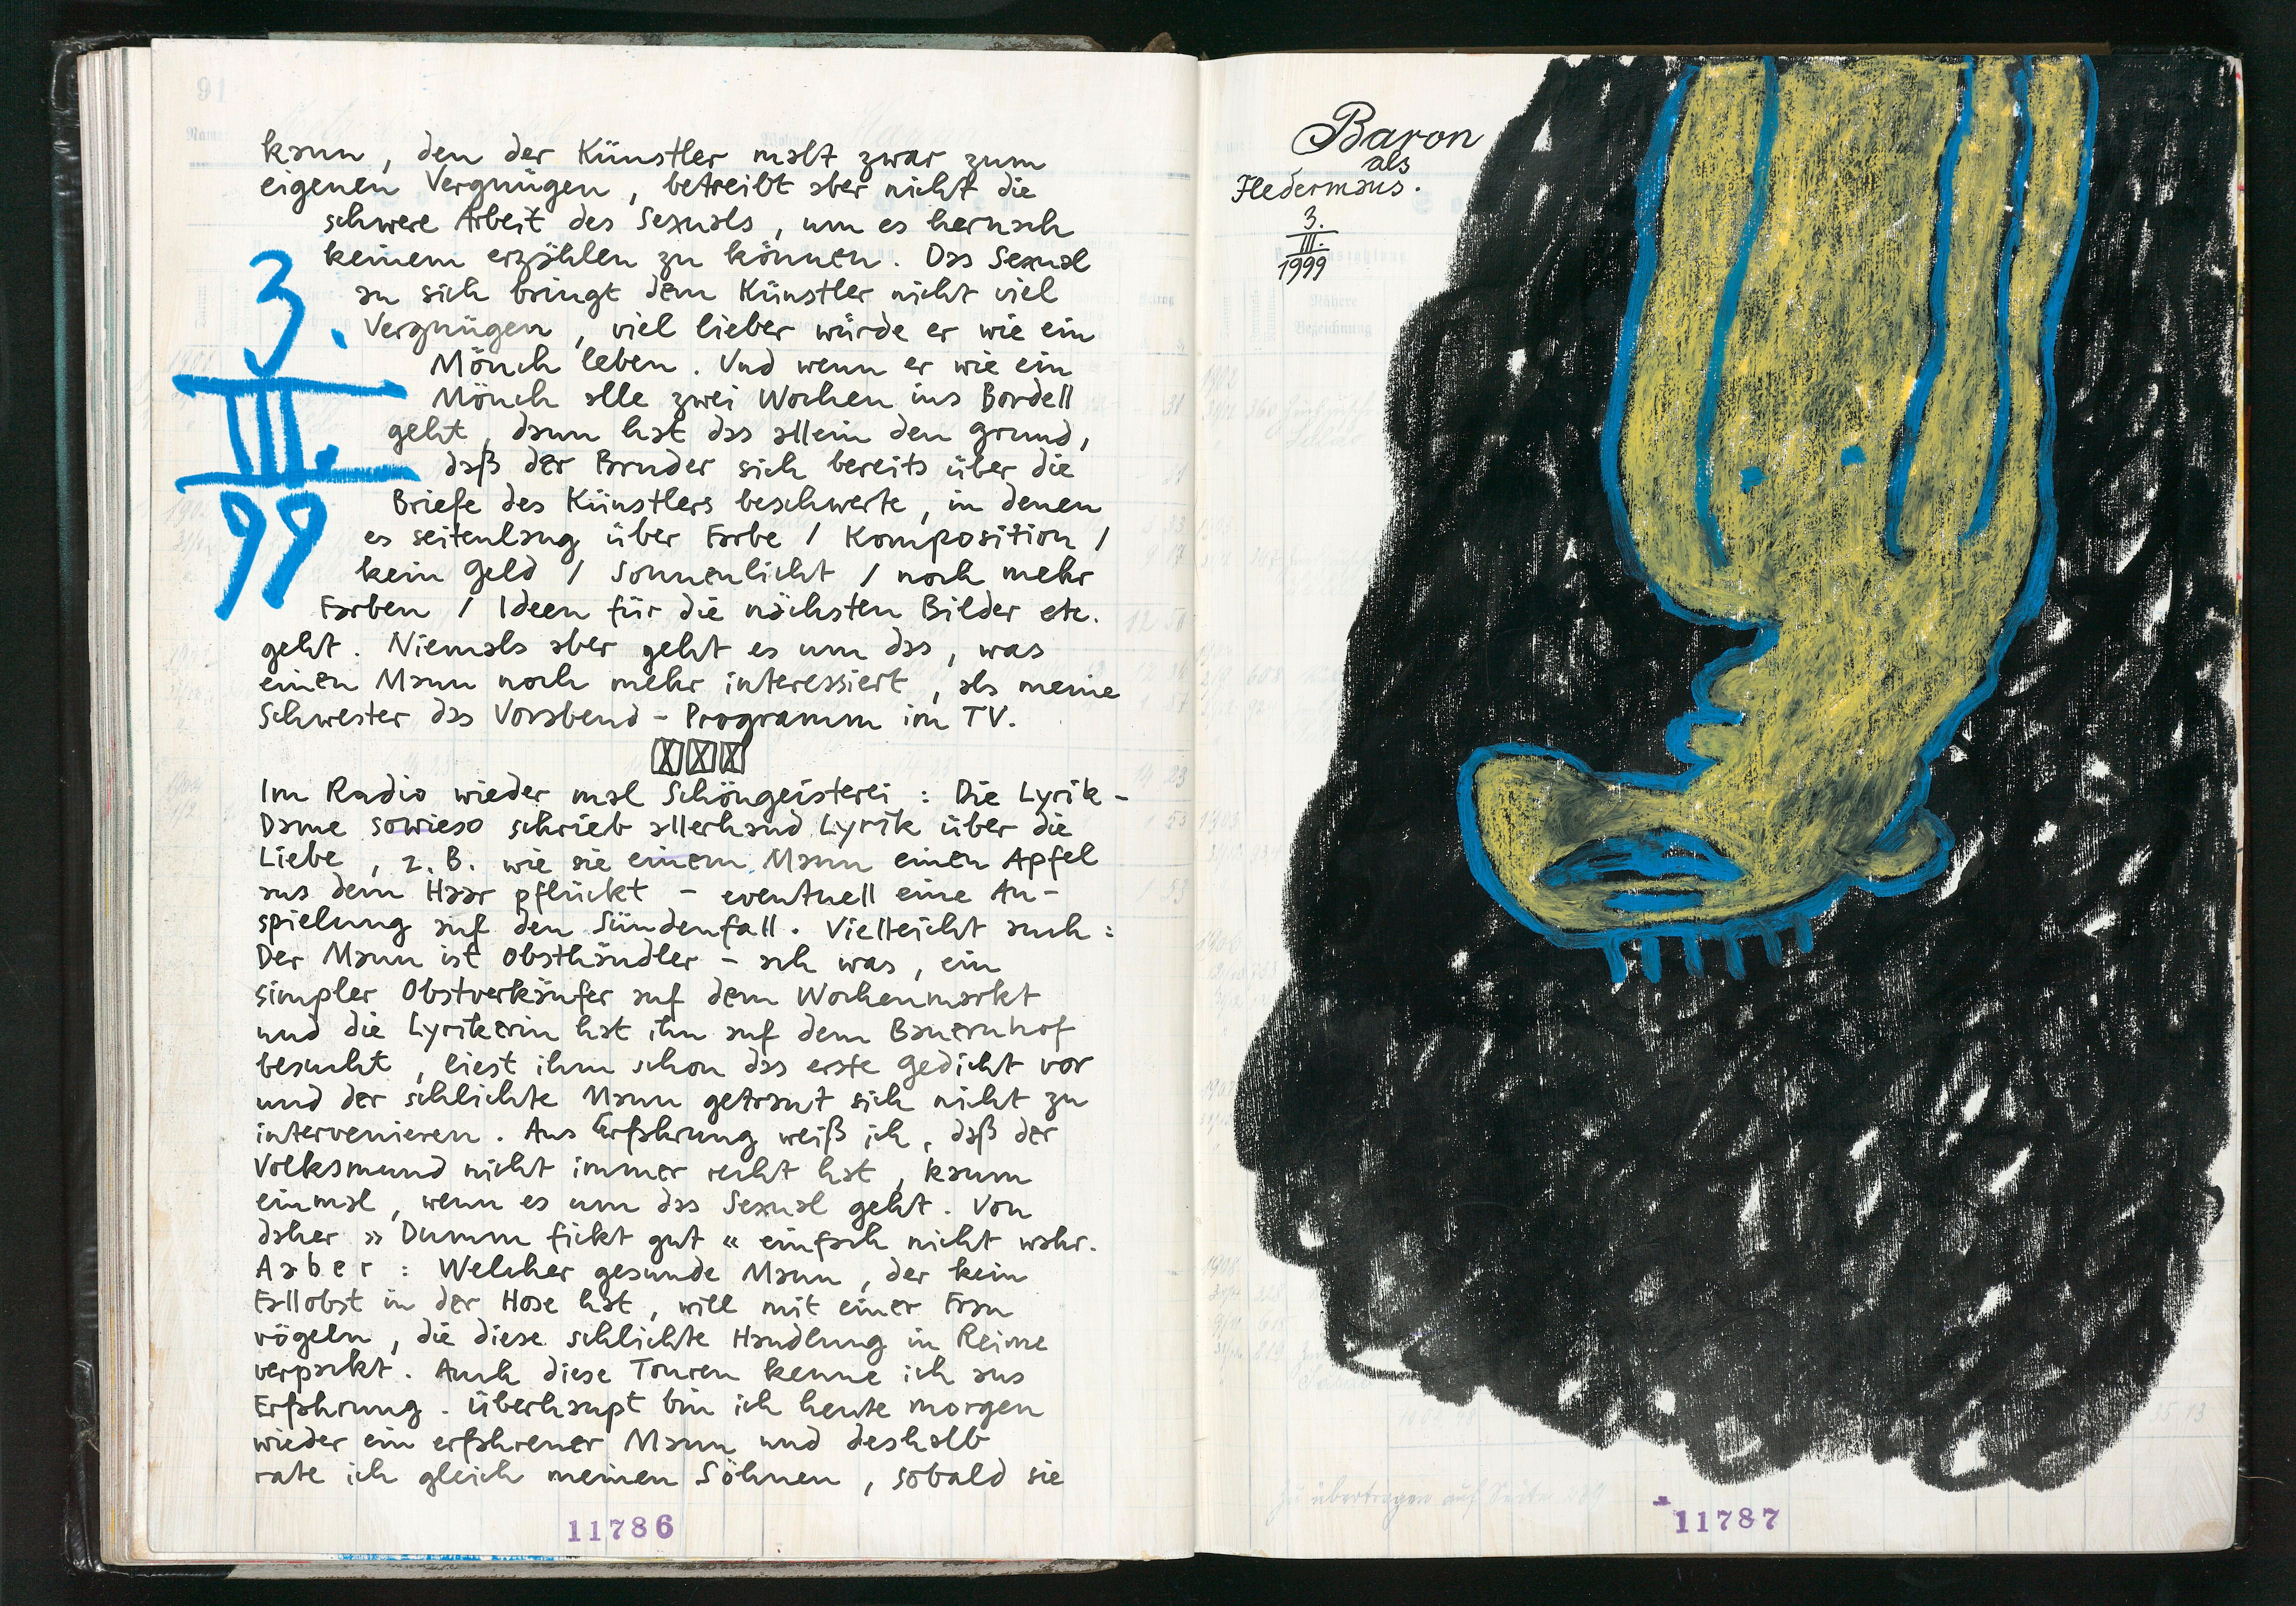 kann, den der Künstler malt zwar zum
eigenen Vergnügen, betreibt aber nicht die
schwere Arbeit des Sexuals, um es hernach
keinem erzählen zu können. Das Sexual
an sich bringt dem Künstler nicht viel
Vergnügen, viel lieber würde er wie ein
Mönch leben. Und wenn er wie ein
Mönch alle zwei Wochen ins Bordell
geht, dann hat das allein den Grund,
daß der Bruder sich bereits über die
Briefe des Künstlers beschwerte, in denen
es seitenlang über Farbe / Komposition /
kein Geld / Sonnenlicht / noch mehr
Farben / Ideen für die nächsten Bilder etc.
geht. Niemals aber geht es um das, was
einen Mann noch mehr interessiert, als meine
Schwester das Vorabend-Programm im TV.
3.
III.
99
Im Radio wieder mal Schöngeisterei: Die Lyrik-
Dame sowieso schrieb allerhand Lyrik über die
Liebe, z.B. wie sie einem Mann einen Apfel
aus dem Haar pflückt - eventuell eine An-
spielung auf den Sündenfall. Vielleicht auch:
Der Mann ist Obsthändler - ach was, ein
simpler Obstverkäufer auf dem Wochenmarkt
und die Lyrikerin hat ihn auf dem Bauernhof
besucht, liest ihm schon das erste Gedicht vor
und der schlichte Mann getraut sich nicht zu
intervenieren. Aus Erfahrung weiß ich, daß der
Volksmund nicht immer recht hat, kaum
einmal, wenn es um das Sexual geht. Von
daher »Dumm fickt gut« einfach nicht wahr.
Aaber: Welcher gesunde Mann, der kein
Fallobst in der Hose hat, will mit einer Frau
vögeln, die diese schlichte Handlung in Reime
verpackt. Auch diese Touren kenne ich aus
Erfahrung. überhaupt bin ich heute morgen
wieder ein erfahrener Mann und deshalb
rate ich gleich meinen Söhnen, sobald sie
11786
Baron
als
Fledermaus.
3.
III.
1999
11787